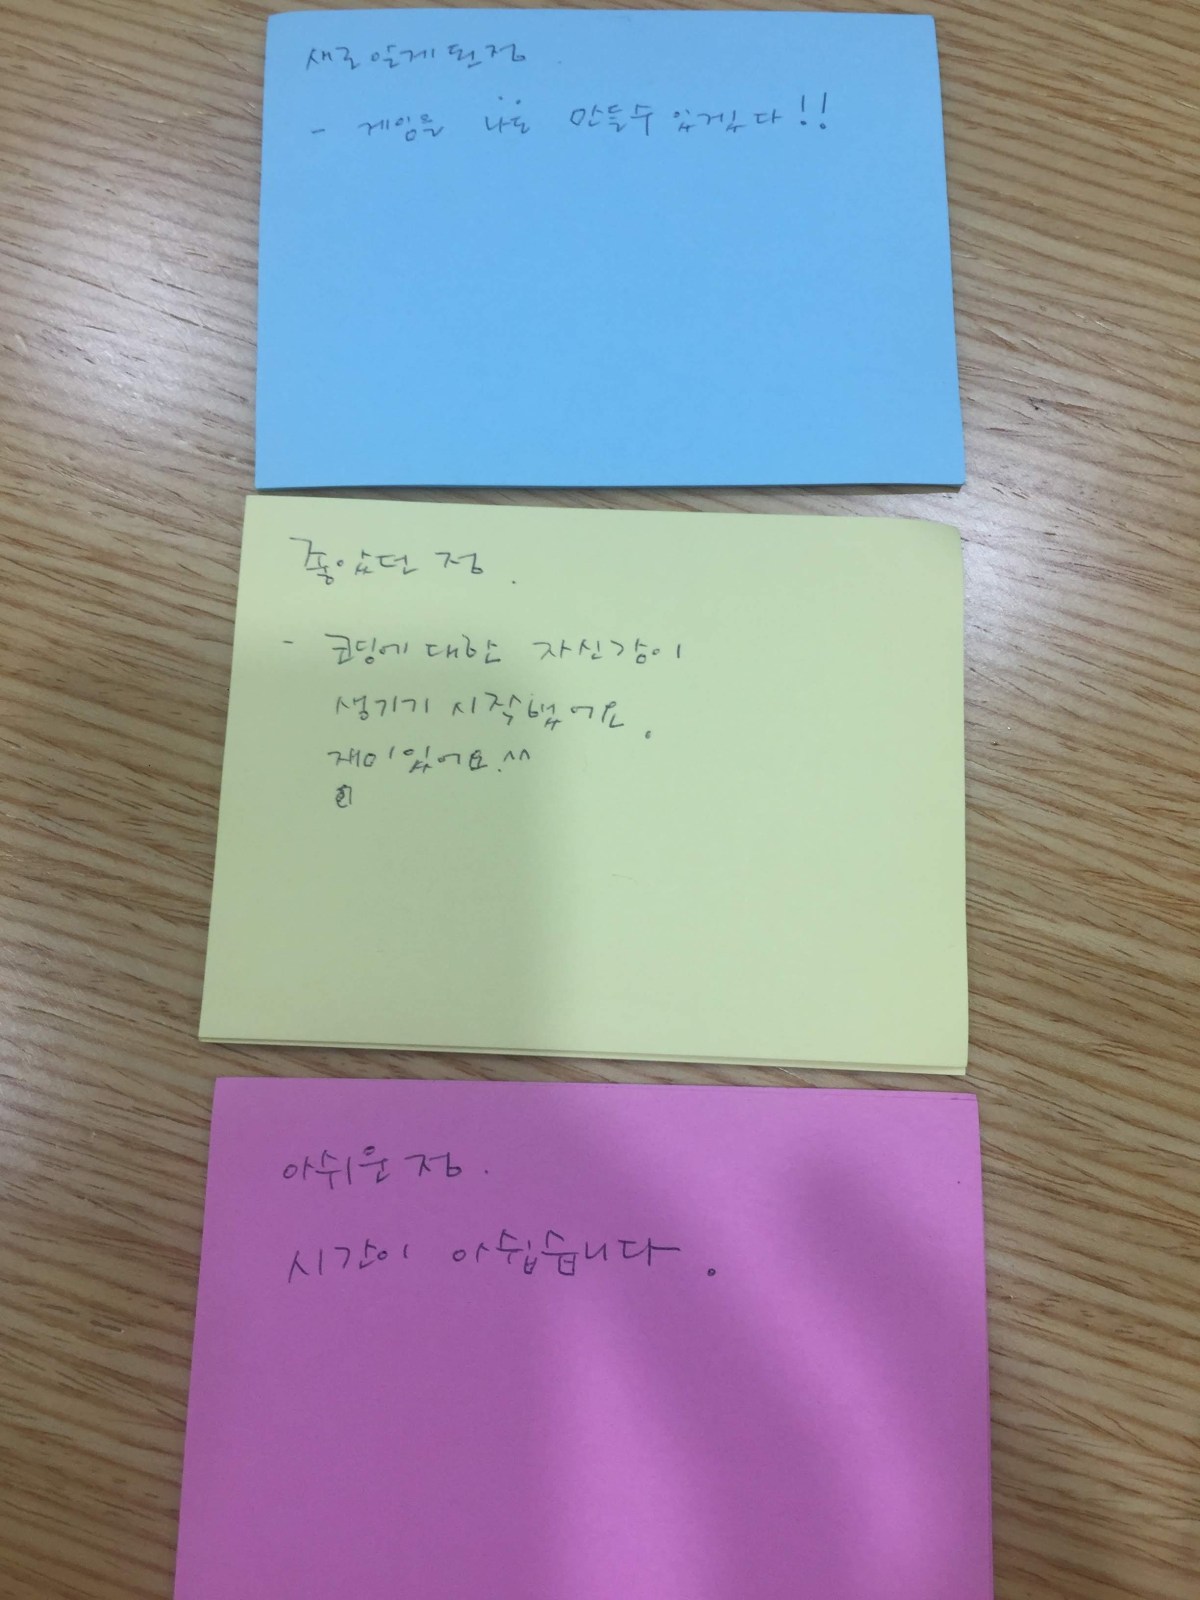 새로 알게 된 점
- 게임을 나도 만들수 있겠다!!
좋았던 점.
- 코딩에 대한 자신감이
생기기 시작했어요.
재미있어요.^^
아쉬운 점.
시간이 아쉽습니다.